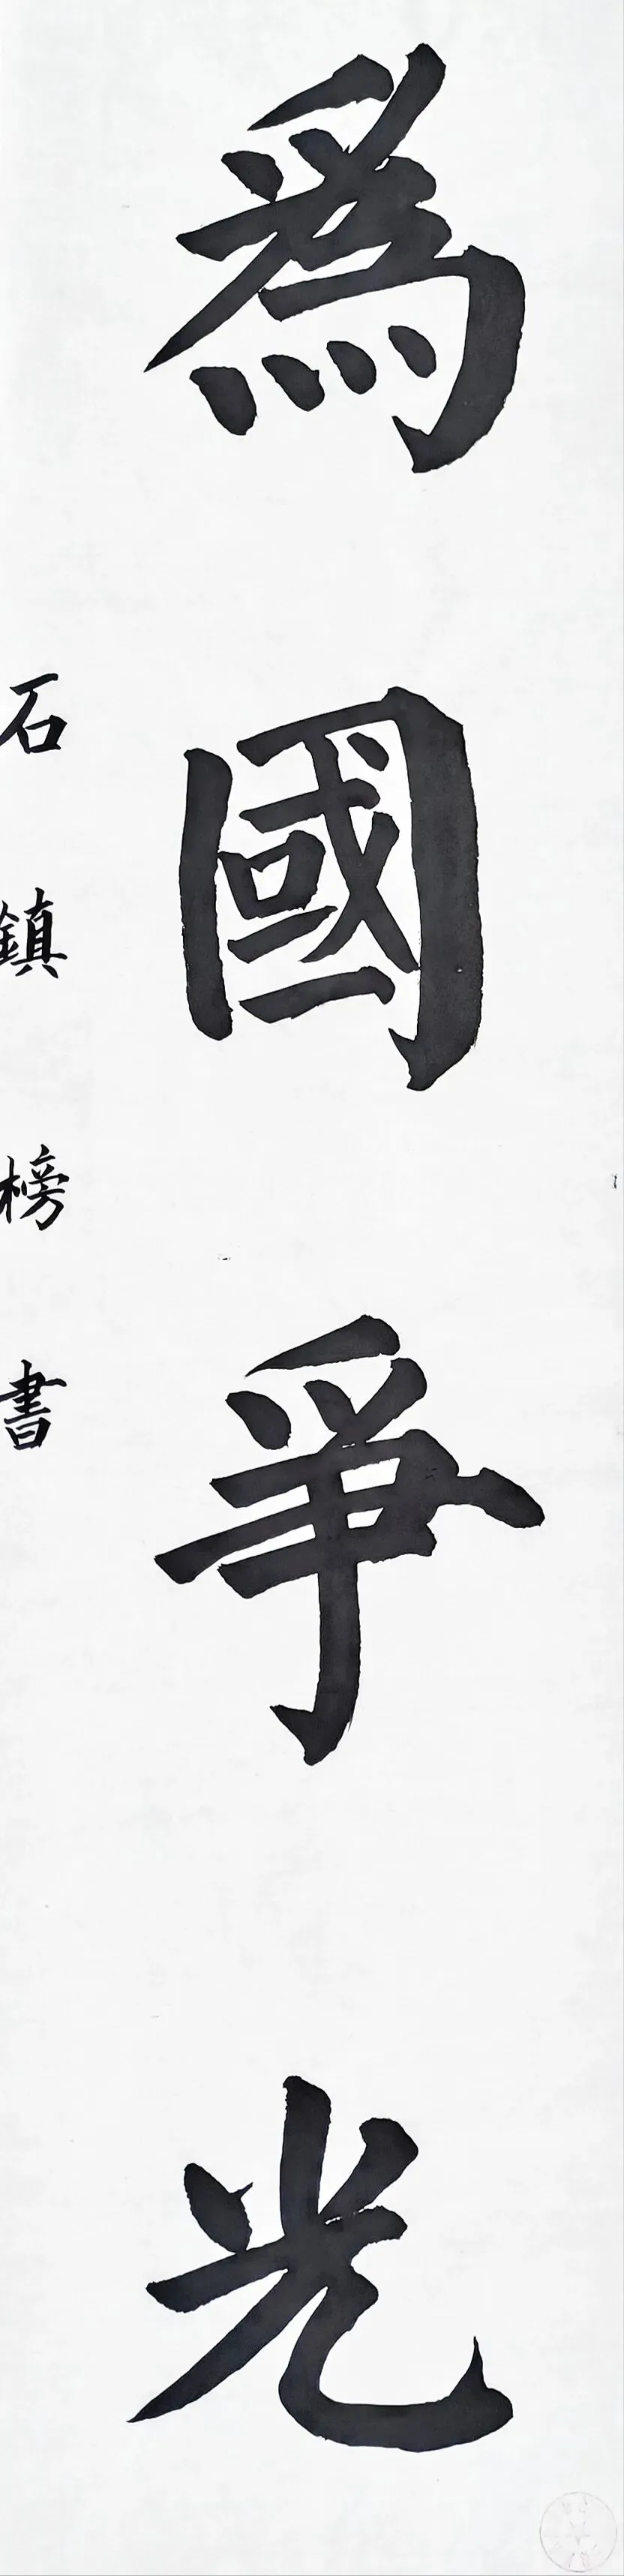 為國爭光
石鎮榜書